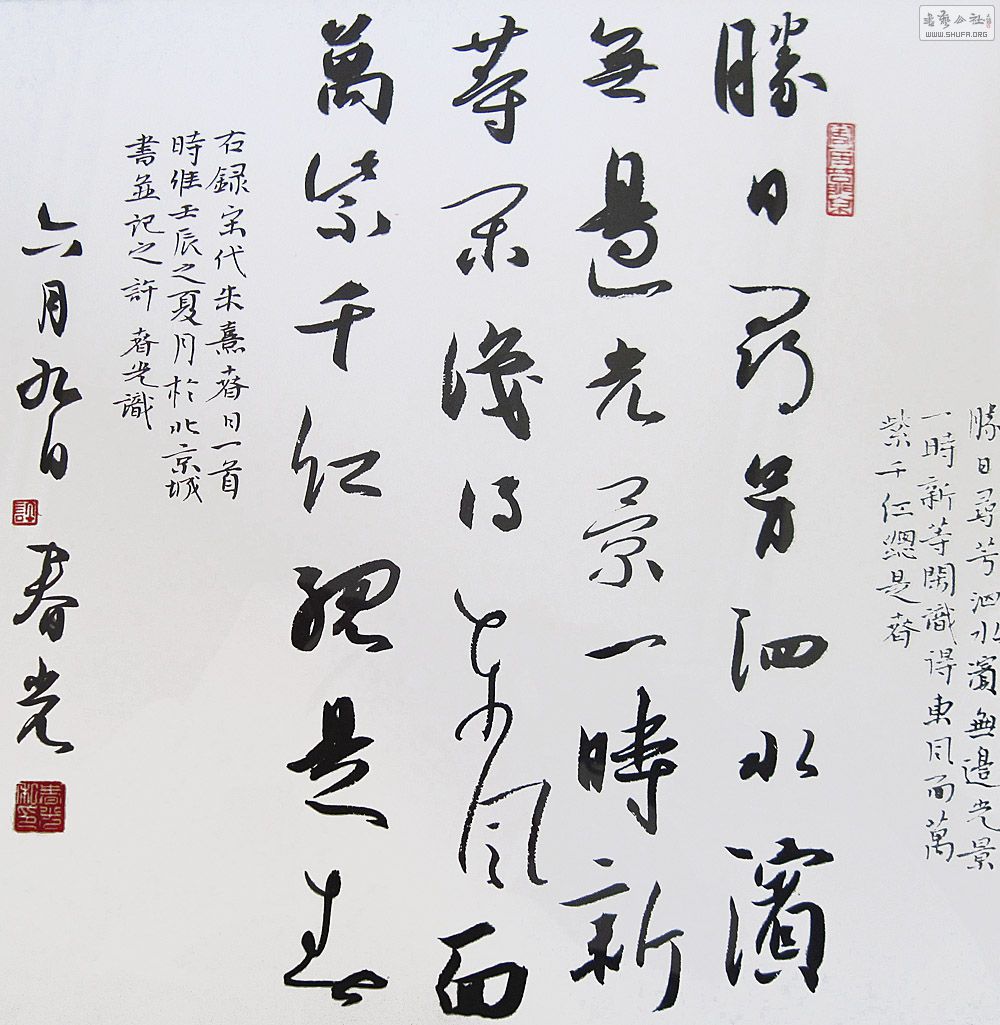 书艺公社
WWW.SHUFA.ORG
勝日尋芳泗水濱無邊光景
一時新等閑識得東風面萬
紫千紅總是春
勝日尋芳泗水濱
無邊光景一時新
等閑識得東風面
萬紫千紅總是春
右録宋代朱熹春日一首
時維壬辰之夏月於北京城
書並記之許春光識
六月九日許春光